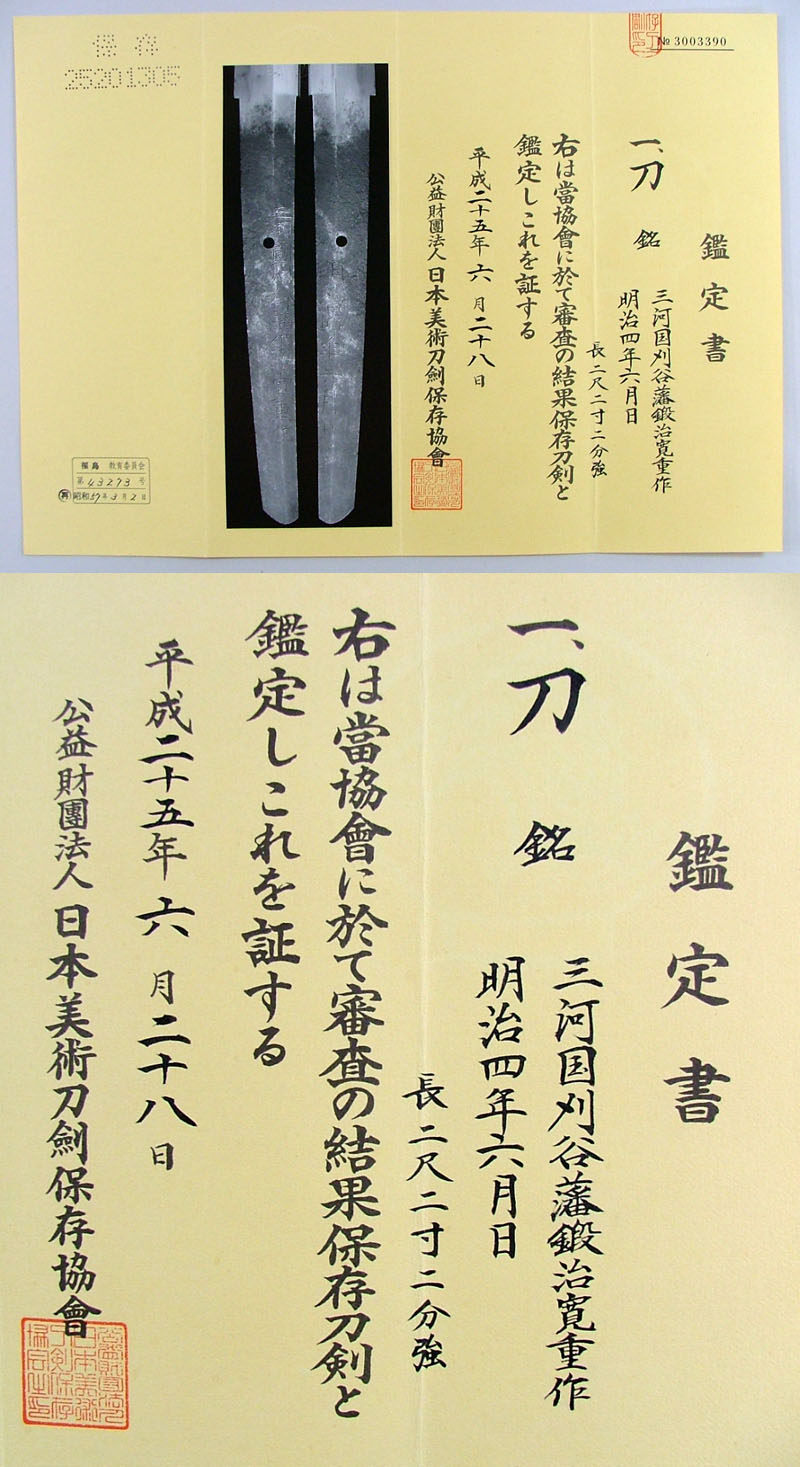 № 3003390
鑑定書
一、刀 銘
三河国刈谷藩鍛治寛重作
明治四年六月日
長二尺二寸二分強
右は當協會に於て審査の結果保存刀剣と
鑑定しこれを証する
平成二十五年六月二十八日
公益財團法人日本美術刀劍保存協會
保存
25201305
福島 教育委員会
第 43273 号
昭和57年3月2日
鑑定書
一、刀 銘
三河国刈谷藩鍛治寛重作
明治四年六月日
長二尺二寸二分強
右は當協會に於て審査の結果保存刀剣と
鑑定しこれを証する
平成二十五年六月二十八日
公益財團法人日本美術刀劍保存協會